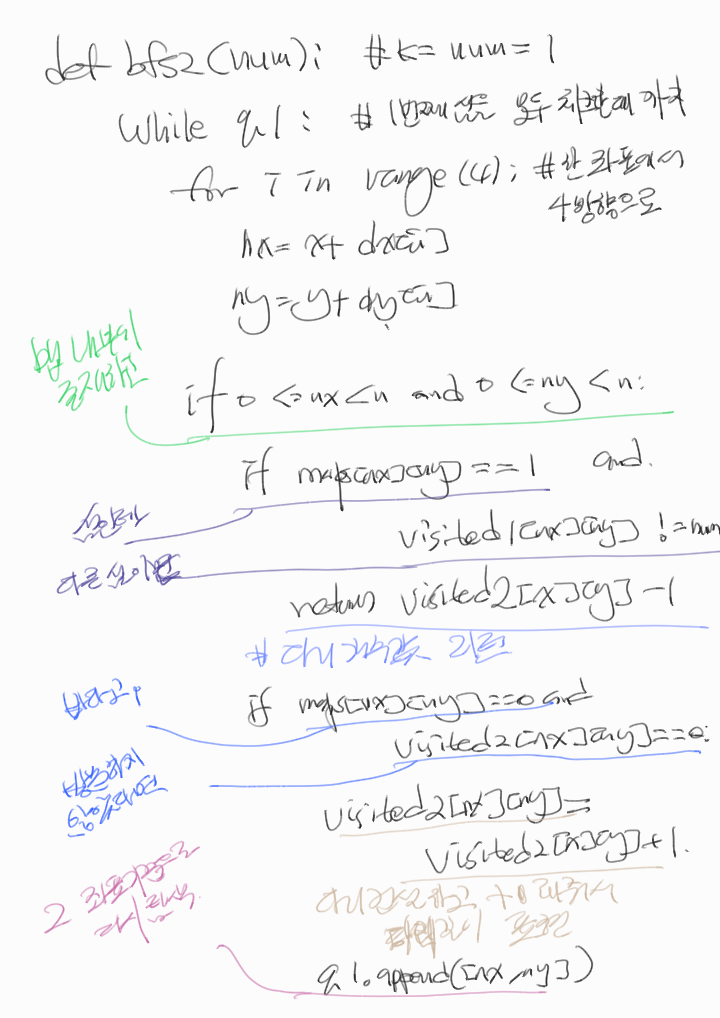 def bfs2(num): #k=num=1
while q1: # 1번째 섬을 모두 치환해 마치
for i in range(4): #한 좌표에서
4방향으로
nx= x+ dx[i]
ny=y+dy[i]
맵 내부에
존재하고
if 0 <=nx<n and 0 <=ny<n:
if maps[nx][ny]==1 and
섬인데
visited1[nx][ny] !=num
다른 섬이면
return visited2[x][y]-1
# 다리 개수값 리턴
바다고,
if maps[nx][ny]==0 and
visited2[nx][ny]==0:
방문하지
않은곳이면
visited2[nx][ny]=
visited2[x][y]+1.
2 좌표기준으로
다시 탐색
다리건설하고 +1 해줘서
q1.append([nx,ny])